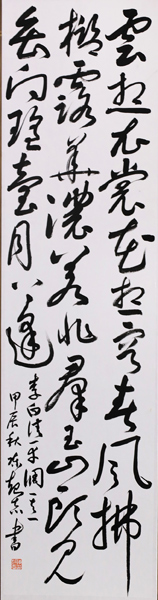 雲想衣裳花想容春風拂
檻露華濃若非群玉山頭見
會向瑤臺月下逢
李白清平調之一
甲辰秋 書